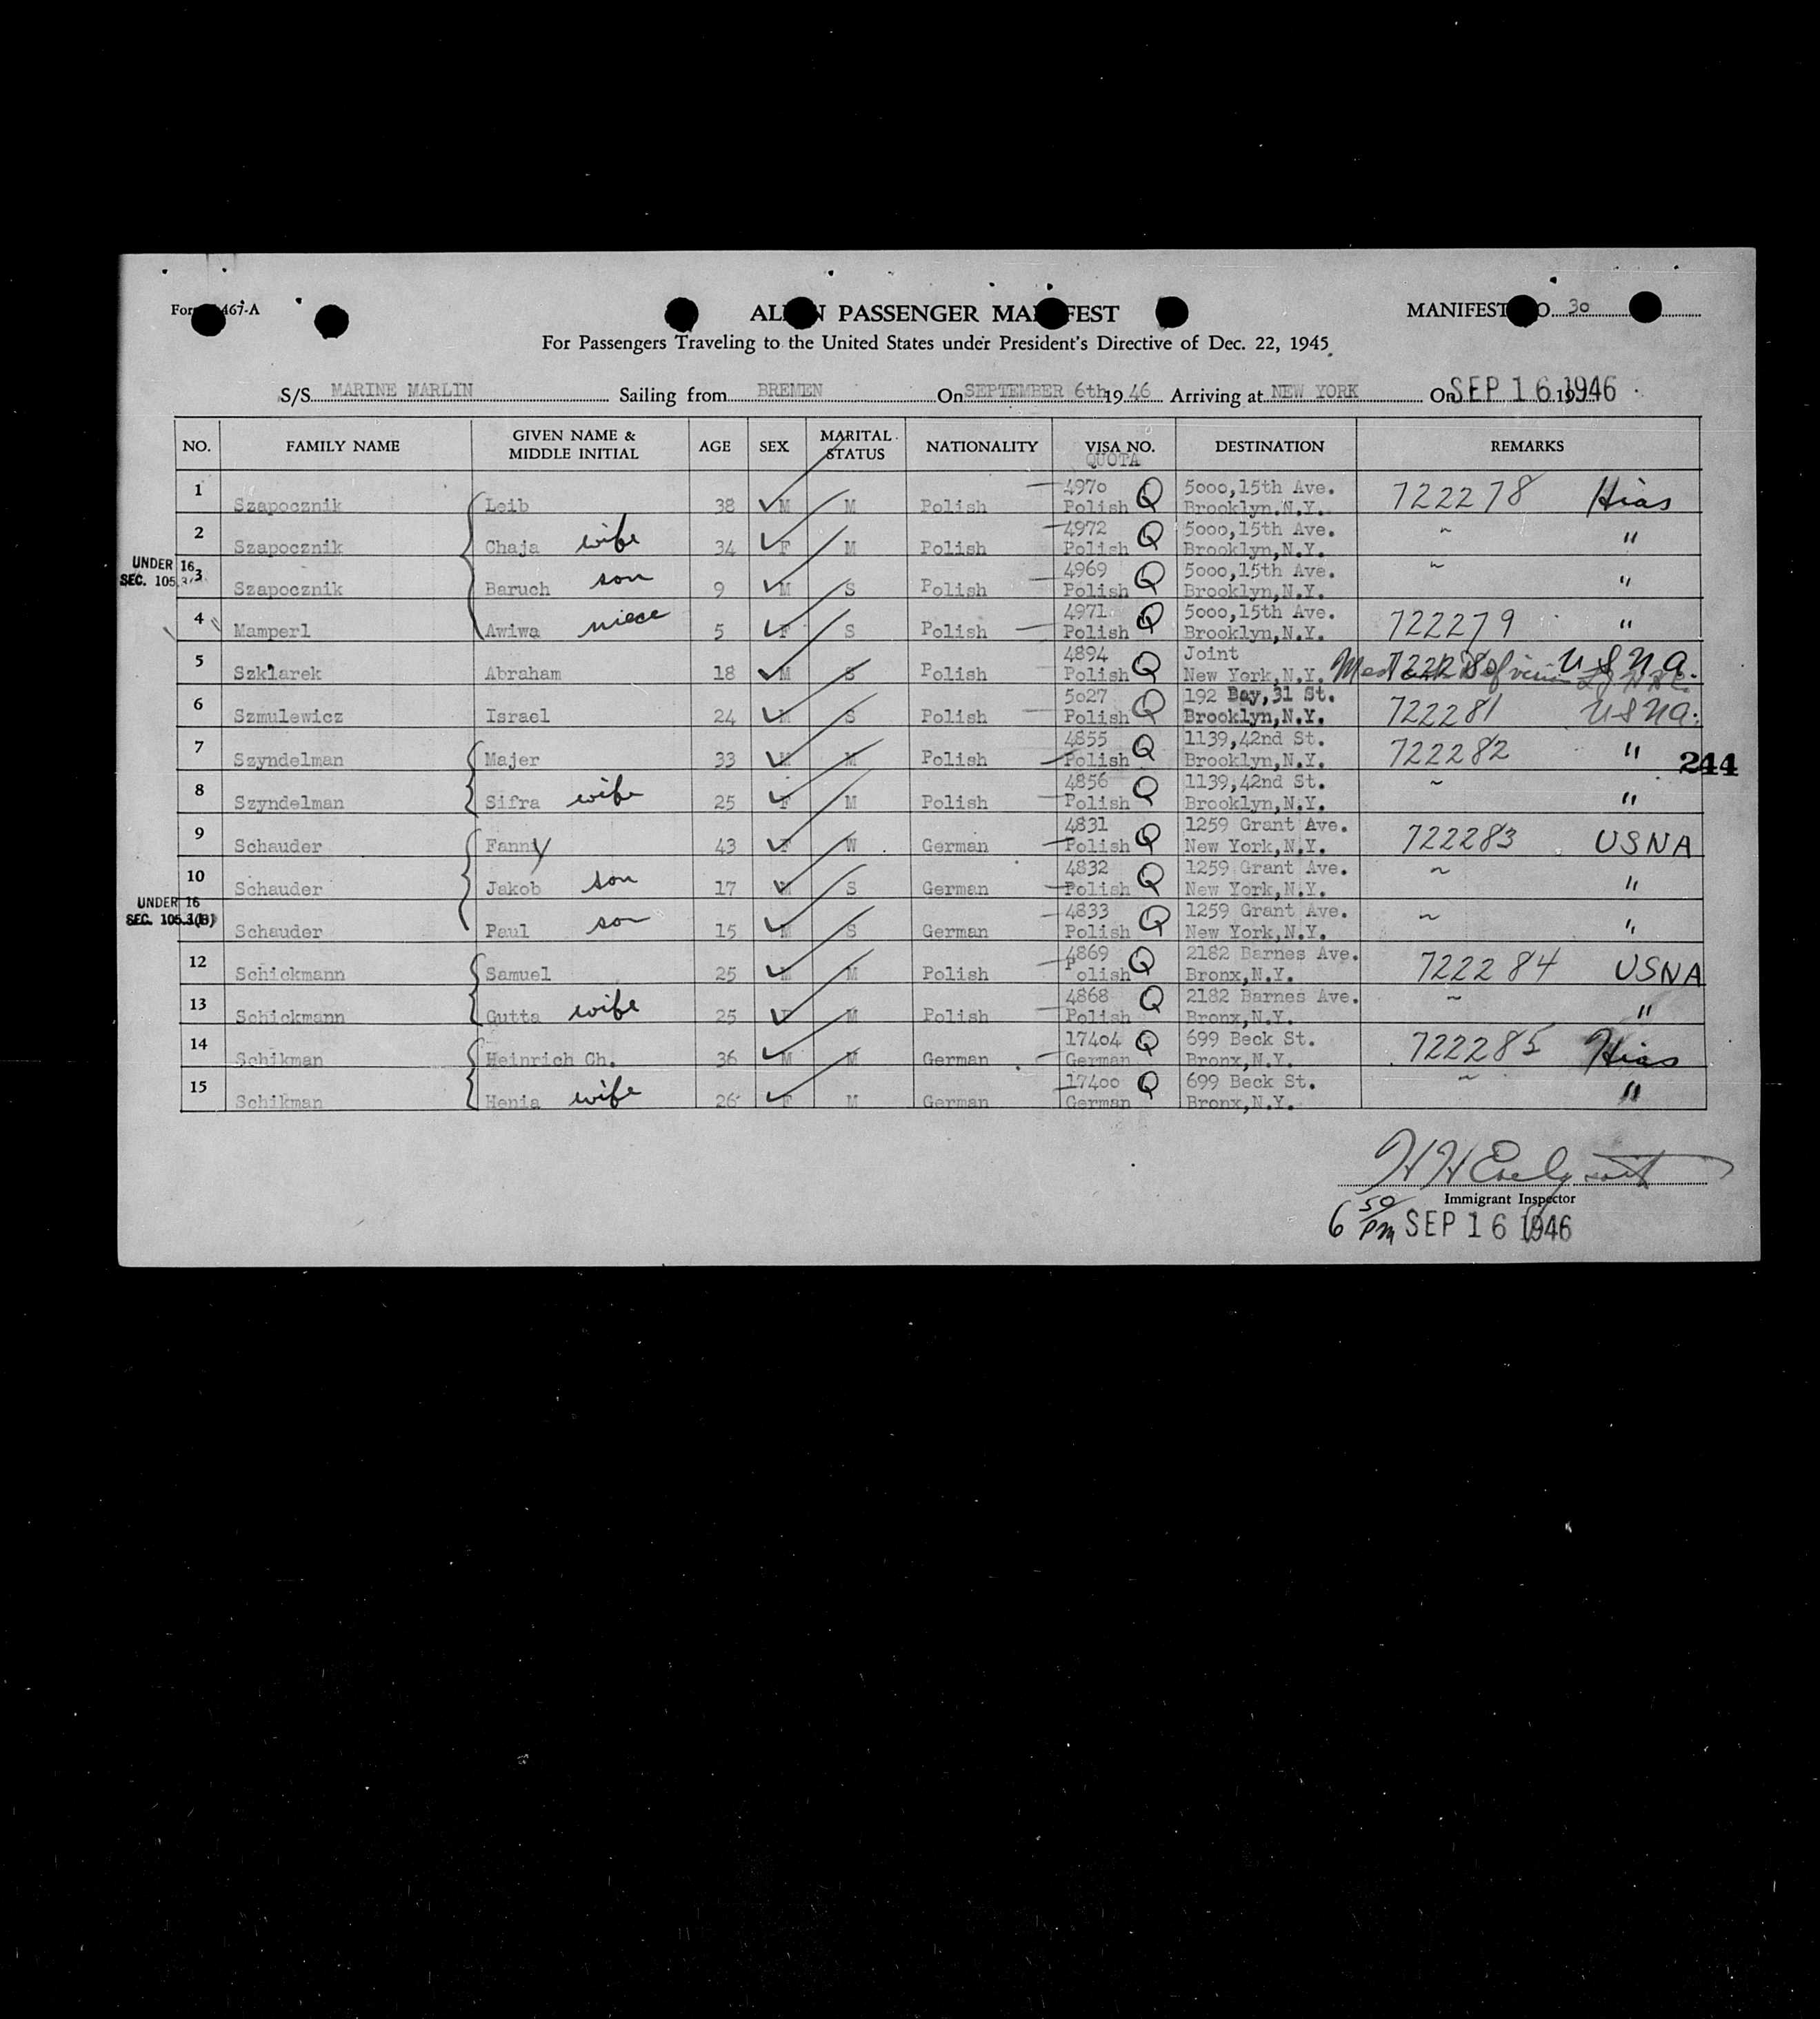 ALIEN PASSENGER MANIFEST
MANIFEST NO. 30
For Passengers Traveling to the United States under President's Directive of Dec. 22, 1945.
S/S MARINE MARLIN Sailing from BREMEN On SEPTEMBER 6th 19 46 Arriving at NEW YORK On SEP 16 1946
NO. FAMILY NAME GIVEN NAME & MIDDLE INITIAL AGE SEX MARITAL STATUS NATIONALITY VISA NO. QUOTA DESTINATION REMARKS
1 Szapocznik Leib 38 M M Polish 4970 Polish Q 5000,15th Ave. Brooklyn,N.Y. 722278 Hias
2 Szapocznik Chaja wife 34 F M Polish 4972 Polish Q 5000,15th Ave. Brooklyn,N.Y. ~ "
UNDER 16
SEC. 105.3
3 Szapocznik Baruch son 9 M S Polish 4969 Polish Q 5000,15th Ave. Brooklyn,N.Y. ~ "
4 Mamperl Awiwa niece 5 F S Polish 4971 Polish Q 5000,15th Ave. Brooklyn,N.Y. 722279 "
5 Szklarek Abraham 18 M S Polish 4894 Polish Q Joint New York,N.Y. 722280 USNA.
6 Szmulewicz Israel 24 M S Polish 5027 Polish Q 192 Bay,31 St. Brooklyn,N.Y. 722281 USNA.
7 Szyndelman Majer 33 M M Polish 4855 Polish Q 1139,42nd St. Brooklyn,N.Y. 722282 "
244
8 Szyndelman Sifra wife 25 F M Polish 4856 Polish Q 1139,42nd St. Brooklyn,N.Y. ~ "
9 Schauder Fanny 43 F W German 4831 Polish Q 1259 Grant Ave. New York,N.Y. 722283 USNA
10 Schauder Jakob son 17 M S German 4832 Polish Q 1259 Grant Ave. New York,N.Y. ~ "
UNDER 16
SEC. 105.3(B)
Schauder Paul son 15 M S German 4833 Polish Q 1259 Grant Ave. New York,N.Y. ~ "
12 Schickmann Samuel 25 M M Polish 4869 Polish Q 2182 Barnes Ave. Bronx,N.Y. 722284 USNA
13 Schickmann Gutta wife 25 F M Polish 4868 Polish Q 2182 Barnes Ave. Bronx,N.Y. ~ "
14 Schikman Heinrich Ch. 36 M M German 17404 German Q 699 Beck St. Bronx,N.Y. 722285 Hias
15 Schikman Henia wife 26 F M German 17400 German Q 699 Beck St. Bronx,N.Y. ~ "
Immigrant Inspector
6 50 PM SEP 16 1946